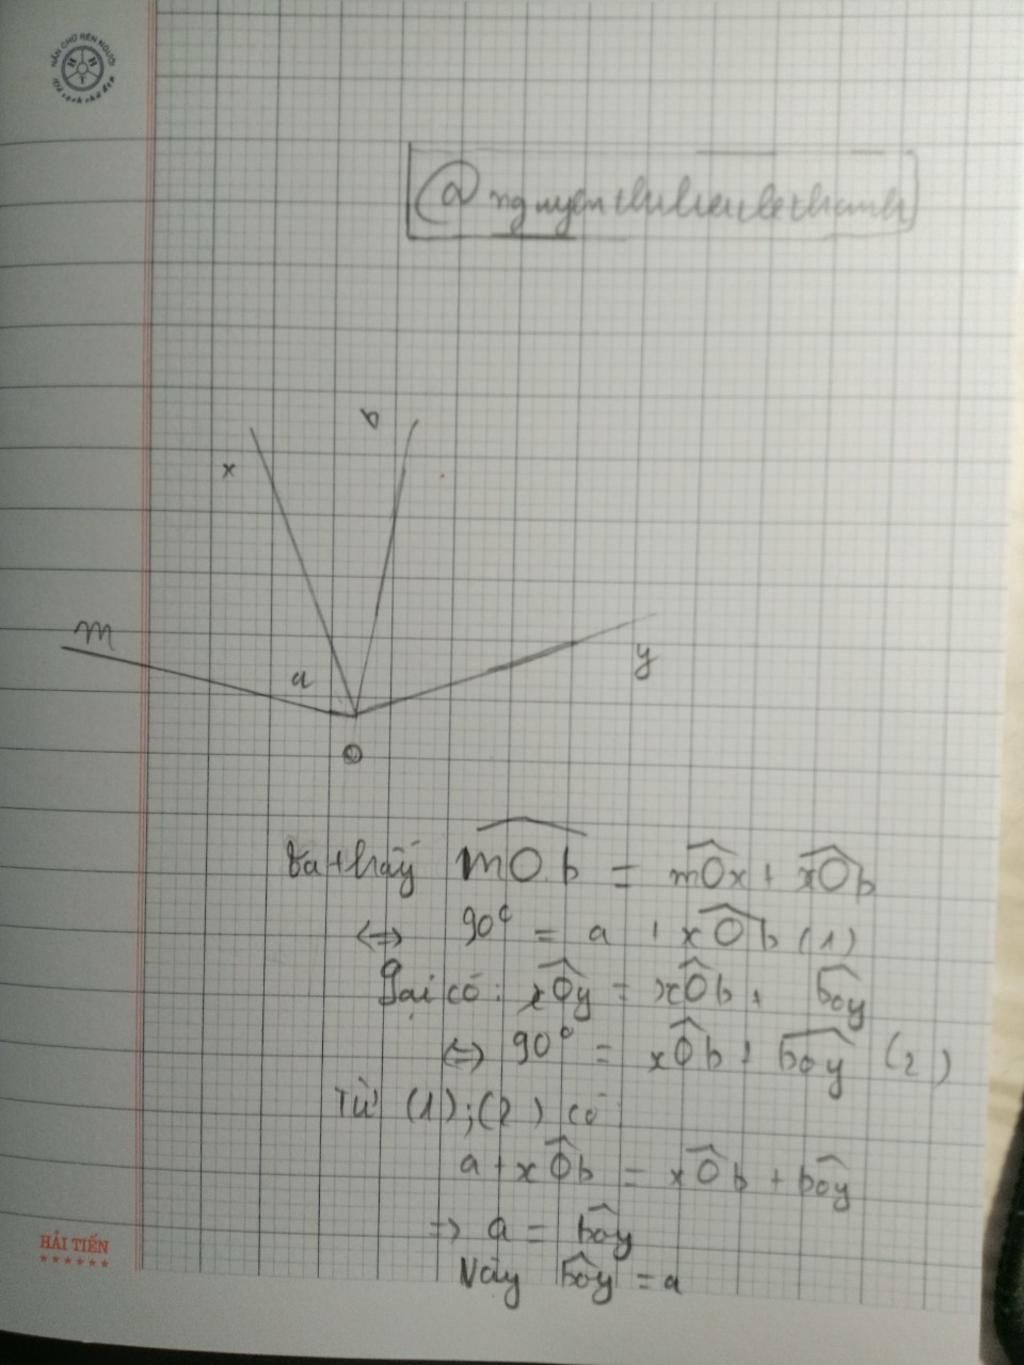 NÂN CHỮ RÈN NGƯỜI
H H T
x
b
m
a
y
O
Ta thấy mOb = mOx + xOb
<=> 90° = a + xOb (1)
Lại có: xOy = xOb + bOy
<=> 90° = xOb + bOy (2)
Từ (1);(2) có
a + xOb = xOb + bOy
=> a = bOy
Vậy bOy = a
HẢI TIẾN